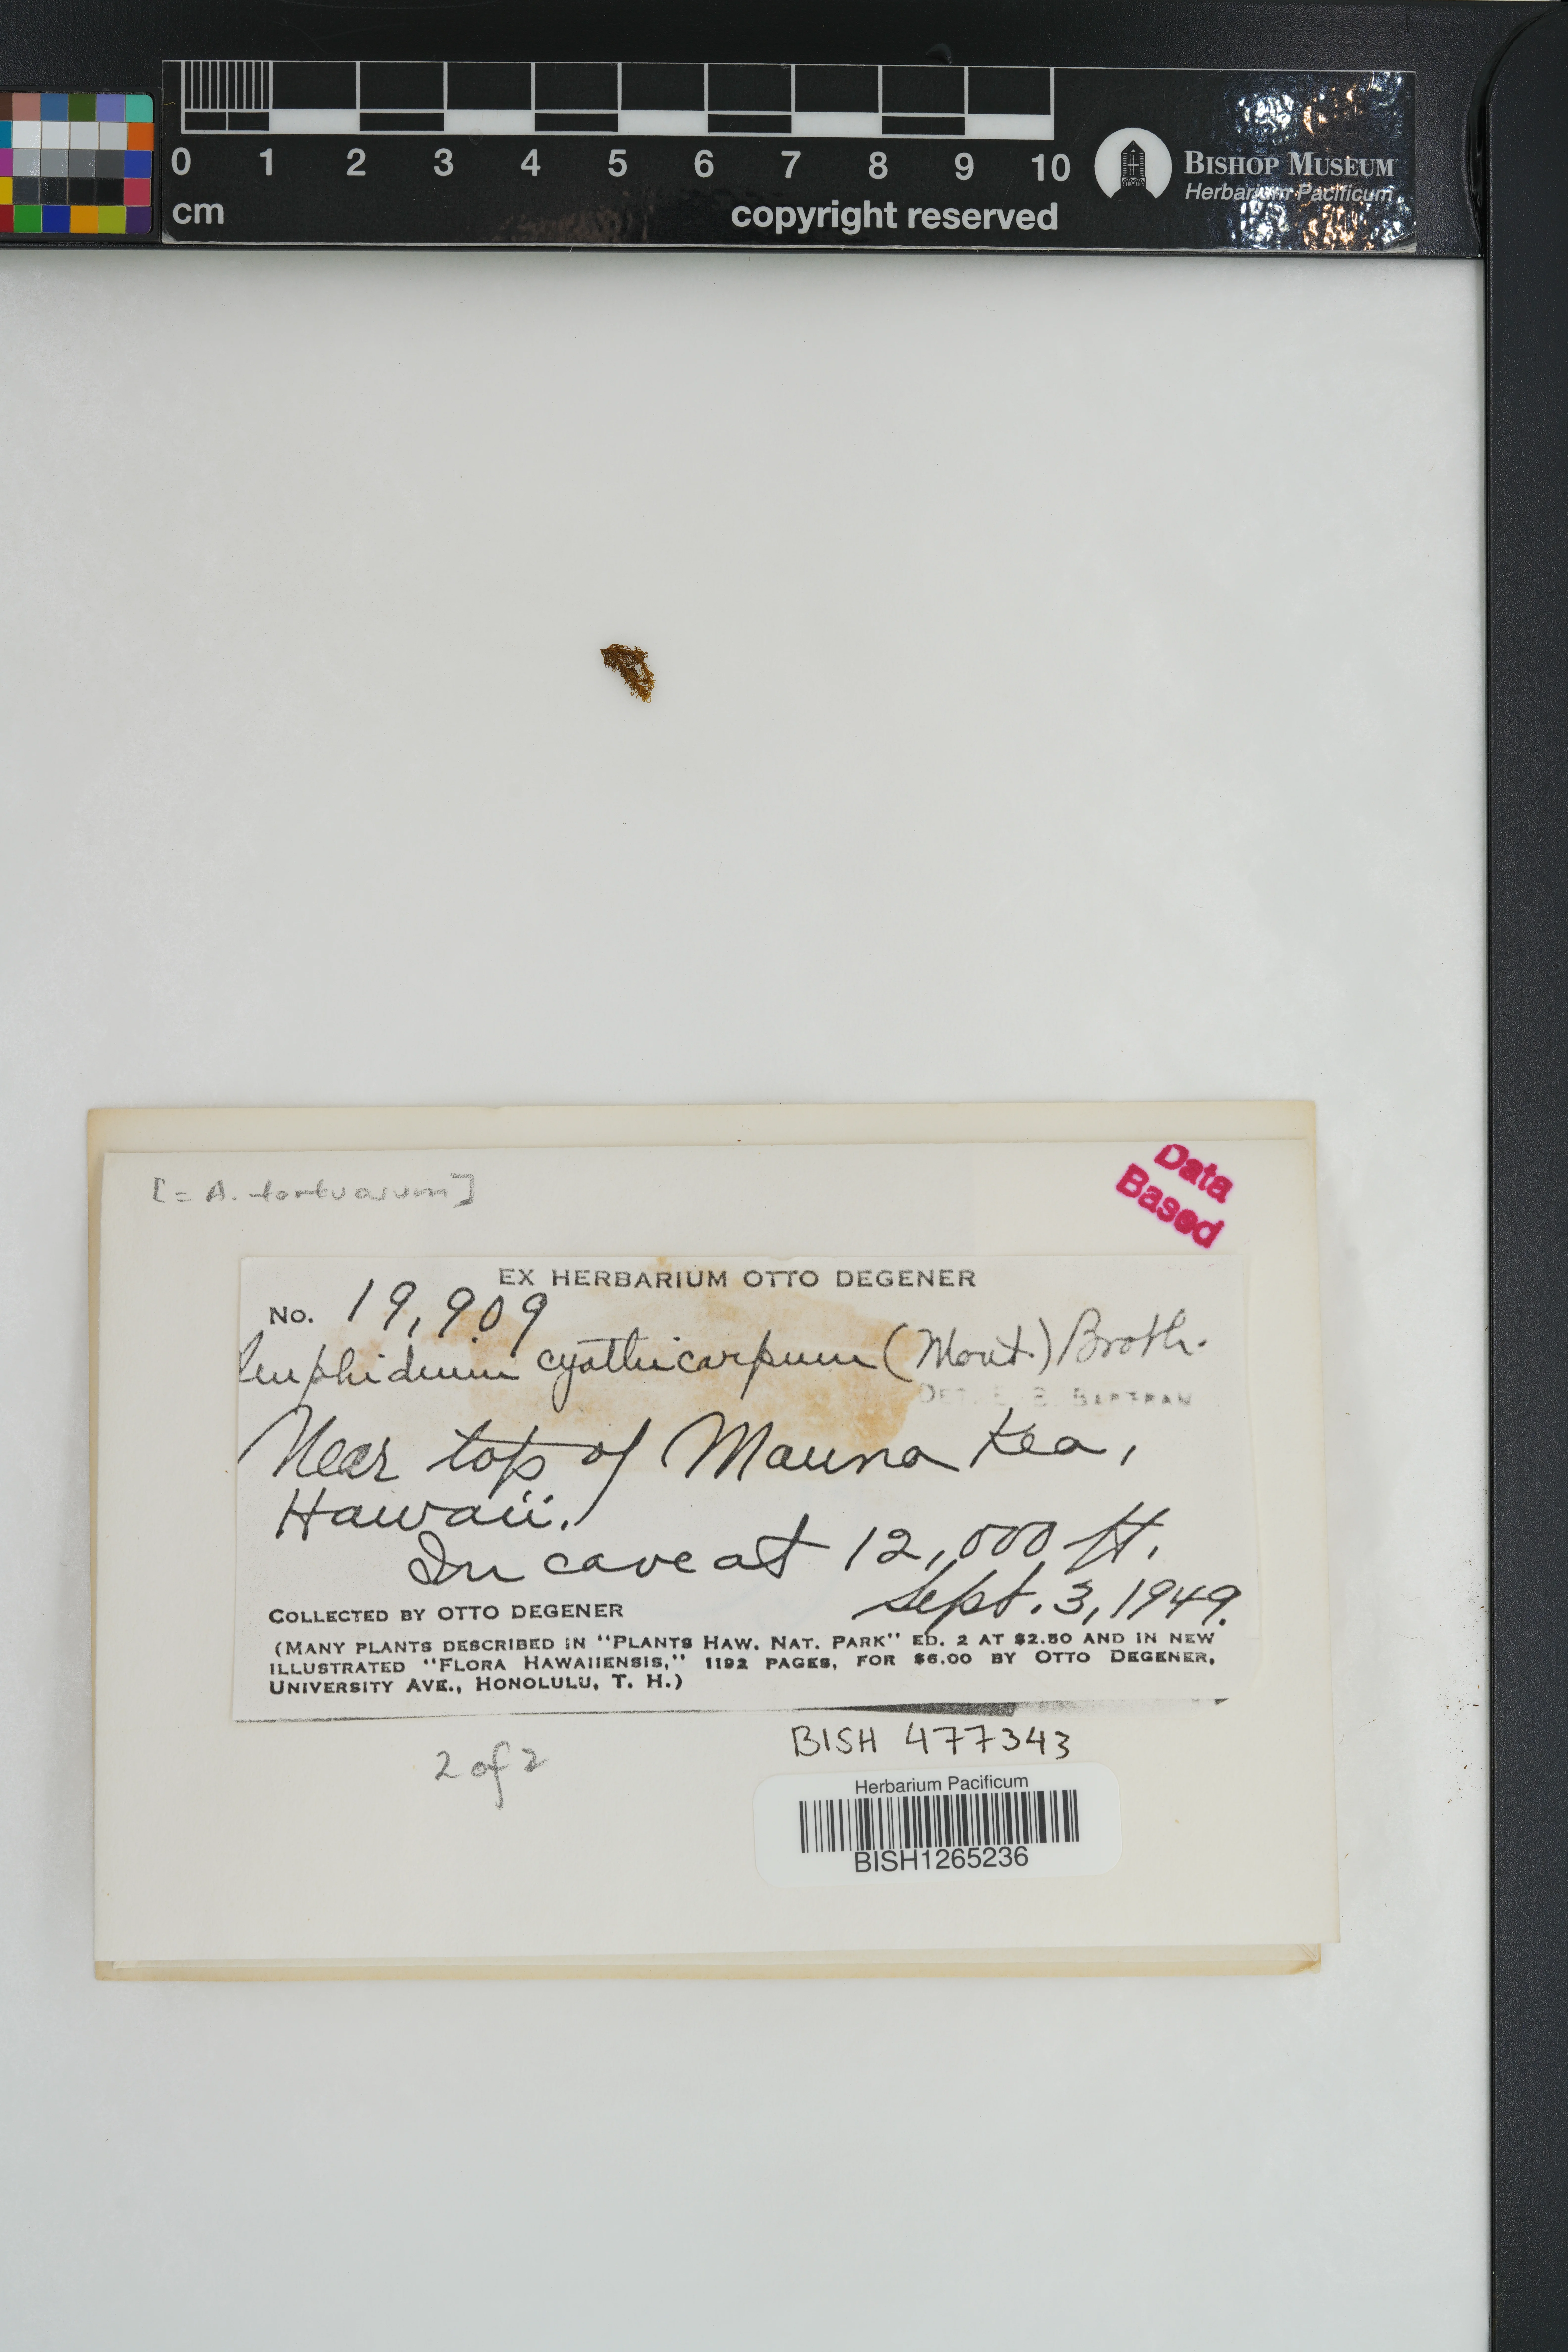 0 1 2 3 4 5 6 7 8 9 10
cm
copyright reserved
BISHOP MUSEUM
Herbarium Pacificum
[= A. tortuosum]
Data
Based
EX HERBARIUM OTTO DEGENER
No. 19,909
Amphidium cyathicarpum (Mont.) Broth.
DET. E. B. BARTRAM
Near top of Mauna Kea,
Hawaii.
In cave at 12,000 ft.
Sept. 3, 1949.
COLLECTED BY OTTO DEGENER
(MANY PLANTS DESCRIBED IN "PLANTS HAW. NAT. PARK" ED. 2 AT $2.50 AND IN NEW
ILLUSTRATED "FLORA HAWAIIENSIS," 1192 PAGES, FOR $6.00 BY OTTO DEGENER,
UNIVERSITY AVE., HONOLULU, T. H.)
BISH 477343
2 of 2
Herbarium Pacificum
BISH1265236